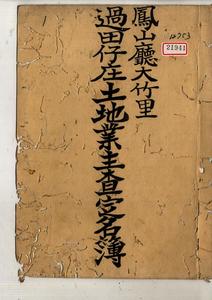 鳳山廳大竹里
過田仔庄土地業主查定名簿
21941